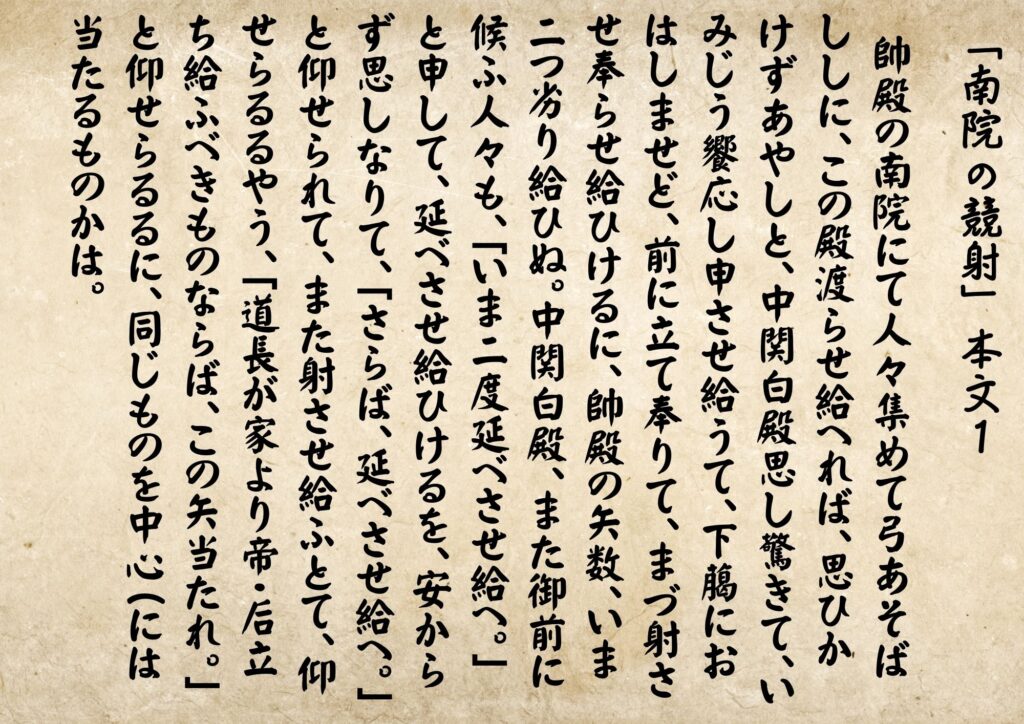 「南院の競射」 本文1
帥殿の南院にて人々集めて弓あそば
ししに、この殿渡らせ給へれば、思ひか
けずあやしと、中関白殿思し驚きて、い
みじう饗応し申させ給うて、下臈にお
はしませど、前に立て奉りて、まづ射さ
せ奉らせ給ひけるに、帥殿の矢数、いま
二つ劣り給ひぬ。中関白殿、また御前に
候ふ人々も、「いま二度延べさせ給へ。」
と申して、延べさせ給ひけるを、安から
ず思しなりて、「さらば、延べさせ給へ。」
と仰せられて、また射させ給ふとて、仰
せらるるやう、「道長が家より帝・后立
ち給ふべきものならば、この矢当たれ。」
と仰せらるるに、同じものを中心(には
当たるものかは。